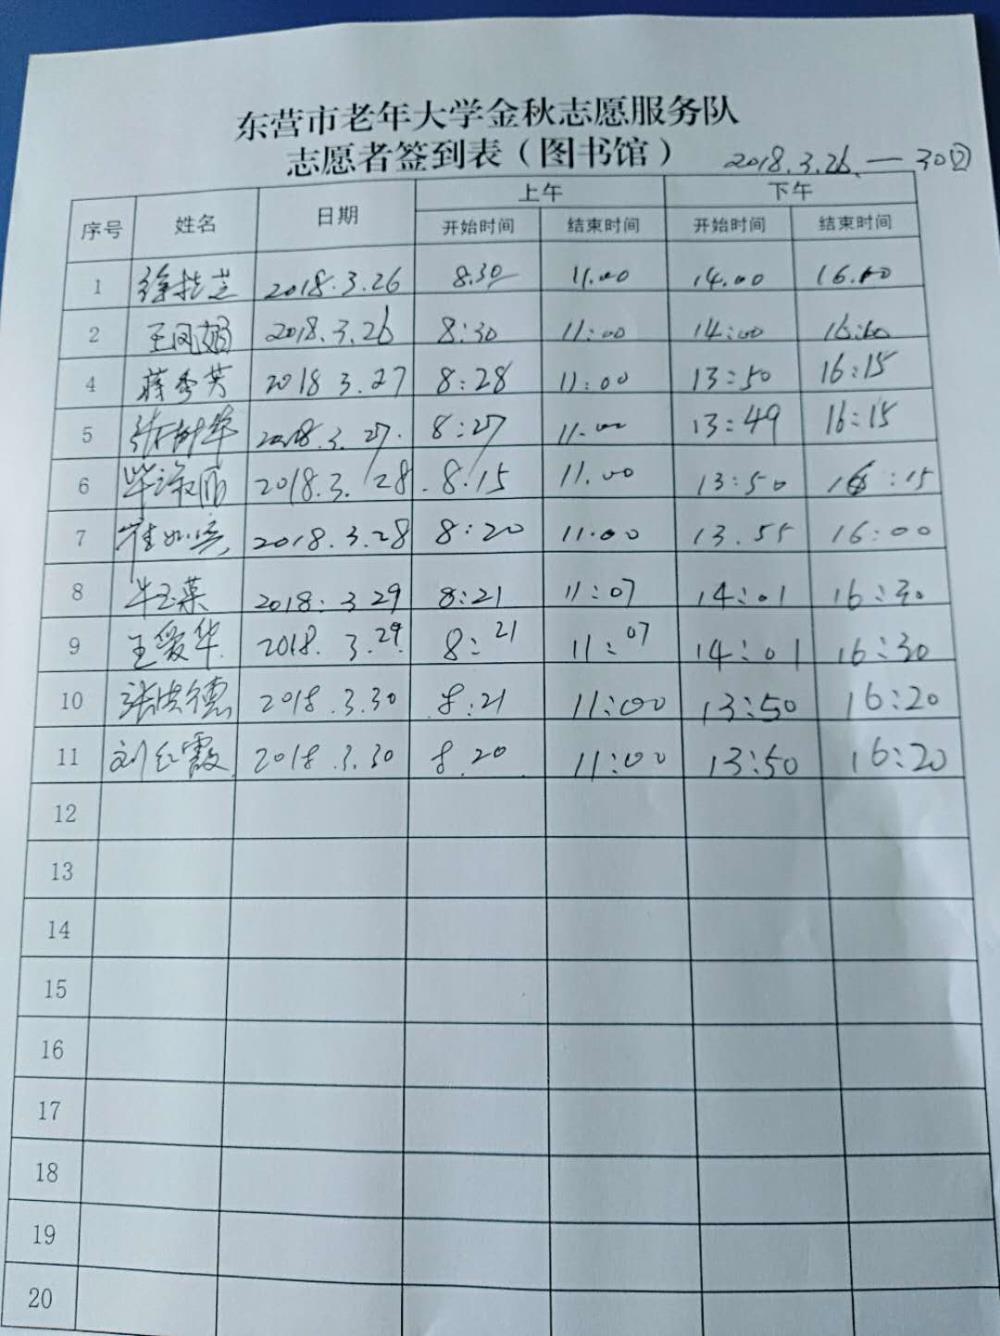 东营市老年大学金秋志愿服务队
志愿者签到表（图书馆） 2018.3.26.—30②
序号 姓名 日期 上午 下午
开始时间 结束时间 开始时间 结束时间
1 徐桂芝 2018.3.26 8.30 11.00 14.00 16.00
2 王凤娟 2018.3.26 8:30 11:00 14:00 16:00
4 蒋秀芳 2018 3.27 8:28 11:00 13:50 16:15
5 张树华 2018.3.27. 8:27 11.00 13:49 16:15
6 毕淑丽 2018.3.28. 8.15 11.00 13:50 16:15
7 崔 2018.3.28 8:20 11.00 13.55 16:00
8 牛玉菜 2018:3 29 8:21 11:07 14:01 16:30
9 王爱华 2018.3.29. 8:21 11:07 14:01 16:30
10 张洪德 2018.3.30 8:21 11:00 13:50 16:20
11 刘红霞 2018.3.30 8.20 11:00 13:50 16:20
12
13
14
15
16
17
18
19
20